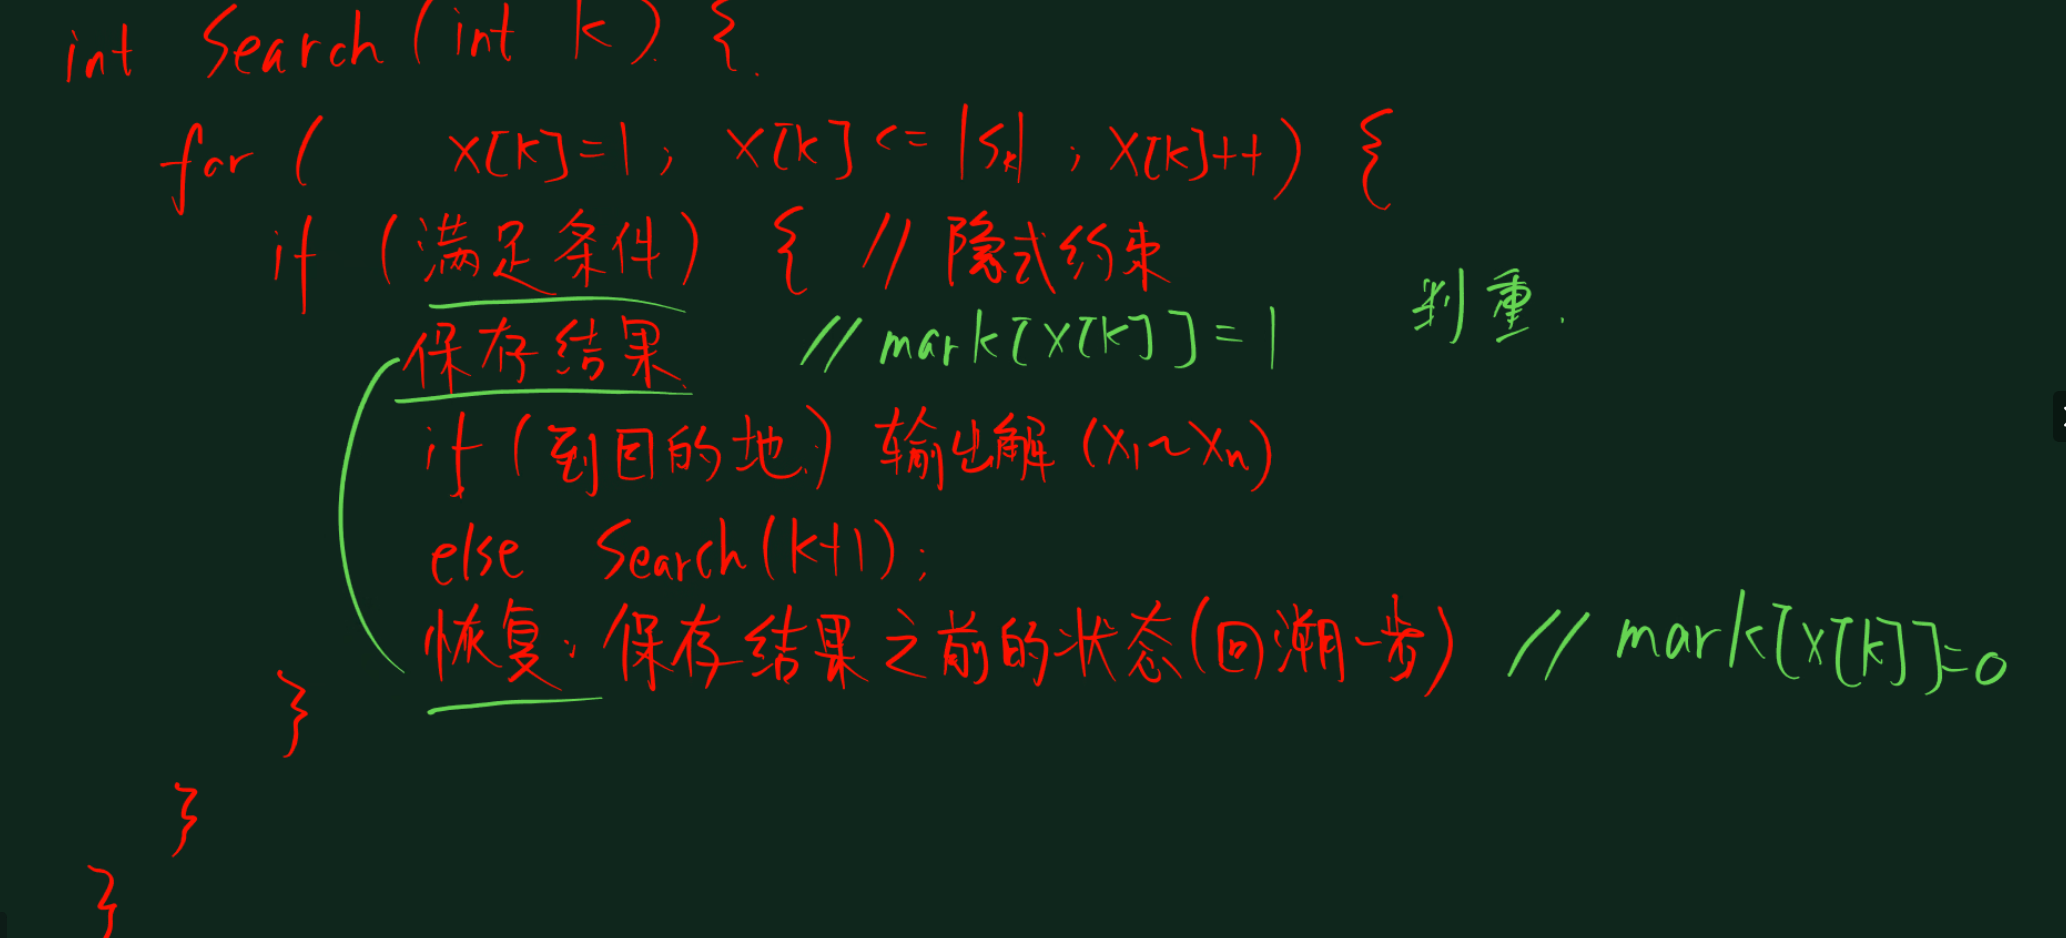 int Search(int k) {
for ( x[k]=1; x[k]<=|Sk|; x[k]++) {
if (满足条件) { // 隐式约束
判重.
保存结果 // mark[x[k]]=1
if (到目的地) 输出解 (x1~xn)
else Search(k+1);
恢复: 保存结果之前的状态(回溯一步) // mark[x[k]]=0
}
}
}